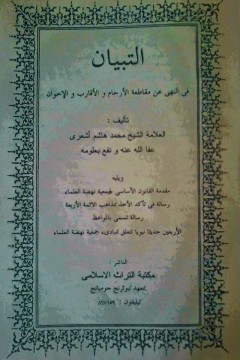 التبيان
فى النهى عن مقاطعة الأرحام و الأقارب و الإخوان
تأليف :
العلامة الشيخ محمد هاشم أشعرى
عفا الله عنه و نفع بعلومه
ويليه
مقدمة القانون الأساسى لجمعية نهضة العلماء
رسالة فى تأكد الأخذ بمذاهب الأئمة الأربعة
رسالة تسمى بالمواعظ
الأربعين حديثا نبويا تتعلق بمبادىء جمعية نهضة العلماء
الناشر :
مكتبة التراث الاسلامى
بمعهد تبوئرنج جومبانج
تيليفون :